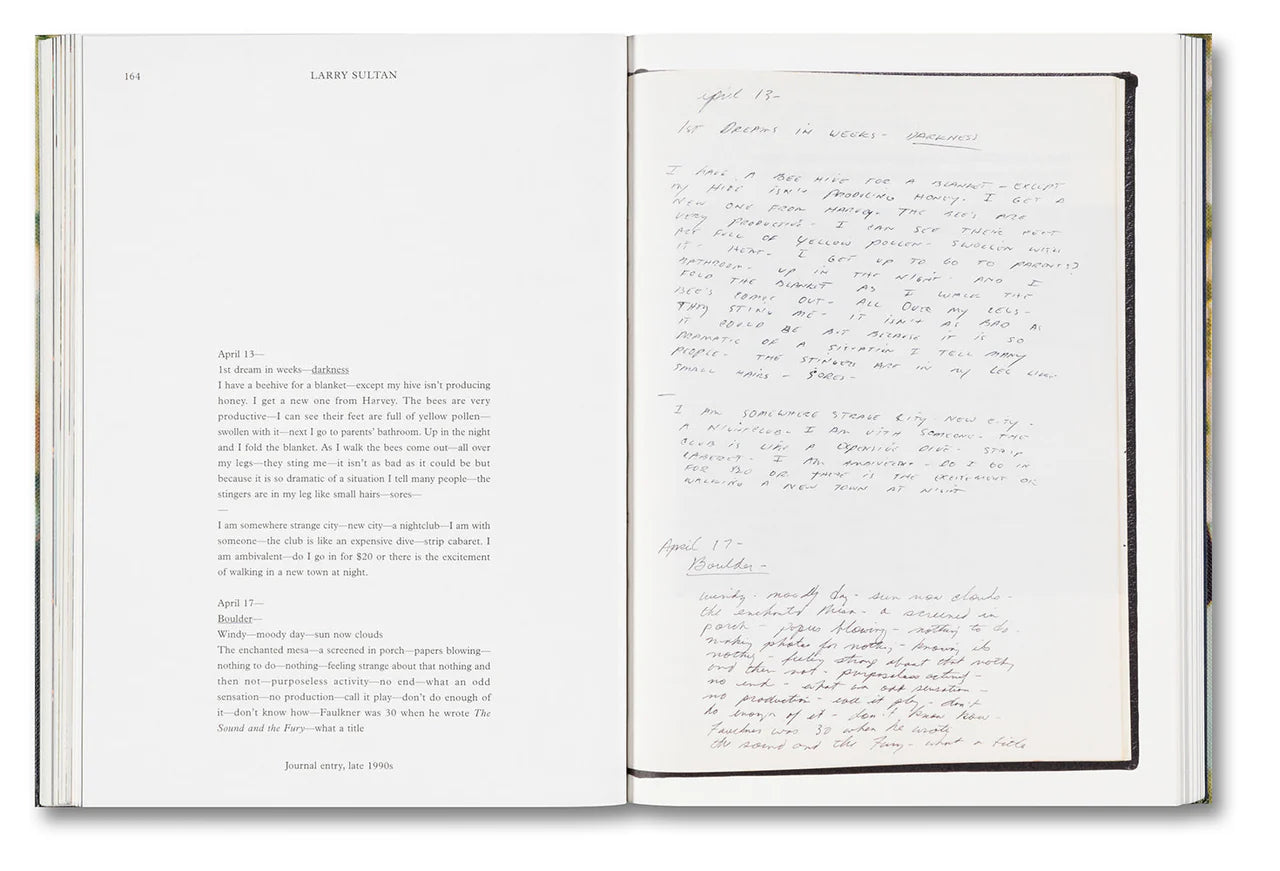 164
LARRY SULTAN
April 13—
1st dream in weeks—darkness
I have a beehive for a blanket—except my hive isn't producing
honey. I get a new one from Harvey. The bees are very
productive—I can see their feet are full of yellow pollen—
swollen with it—next I go to parents' bathroom. Up in the night
and I fold the blanket. As I walk the bees come out—all over
my legs—they sting me—it isn't as bad as it could be but
because it is so dramatic of a situation I tell many people—the
stingers are in my leg like small hairs—sores—
—
I am somewhere strange city—new city—a nightclub—I am with
someone—the club is like an expensive dive—strip cabaret. I
am ambivalent—do I go in for $20 or there is the excitement
of walking in a new town at night.
April 17—
Boulder—
Windy—moody day—sun now clouds
The enchanted mesa—a screened in porch—papers blowing—
nothing to do—nothing—feeling strange about that nothing and
then not—purposeless activity—no end—what an odd
sensation—no production—call it play—don't do enough of
it—don't know how—Faulkner was 30 when he wrote The
Sound and the Fury—what a title
Journal entry, late 1990s
April 13-
1ST DREAMS IN WEEKS - DARKNESS
I HAVE A BEE HIVE FOR A BLANKET - EXCEPT
MY HIVE ISN'T PRODUCING HONEY. I GET A
NEW ONE FROM HARVEY. THE BEES ARE
VERY PRODUCTIVE - I CAN SEE THEIR FEET
ARE FULL OF YELLOW POLLEN - SWOLLEN WITH
IT - I GET UP TO GO TO PARENTS?
BATHROOM. UP IN THE NIGHT AND I
FOLD THE BLANKET AS I WALK THE
BEE'S COME OUT - ALL OVER MY LEGS -
THEY STING ME - IT ISN'T AS BAD AS
IT COULD BE BUT BECAUSE IT IS SO
DRAMATIC OF A SITUATION I TELL MANY
PEOPLE - THE STINGERS ARE IN MY LEG LIKE
SMALL HAIRS - SORES -
—
I AM SOMEWHERE STRANGE CITY - NEW CITY -
A NIGHTCLUB - I AM WITH SOMEONE - THE
CLUB IS LIKE A EXPENSIVE DIVE - STRIP
CABERET - I AM - DO I GO IN
FOR $20 OR THERE IS THE EXCITEMENT OF
WALKING A NEW TOWN AT NIGHT
April 17-
Boulder-
windy - moody day - sun now clouds -
the enchanted mesa - a screened in
porch - papers blowing - nothing to do -
making photos for nothing - knowing its
nothing - feeling strange about that nothing
and then not - purposeless activity -
no end - what an odd sensation -
no production - call it play - don't
do enough of it - don't know how -
Faulkner was 30 when he wrote
the sound and the Fury - what a title